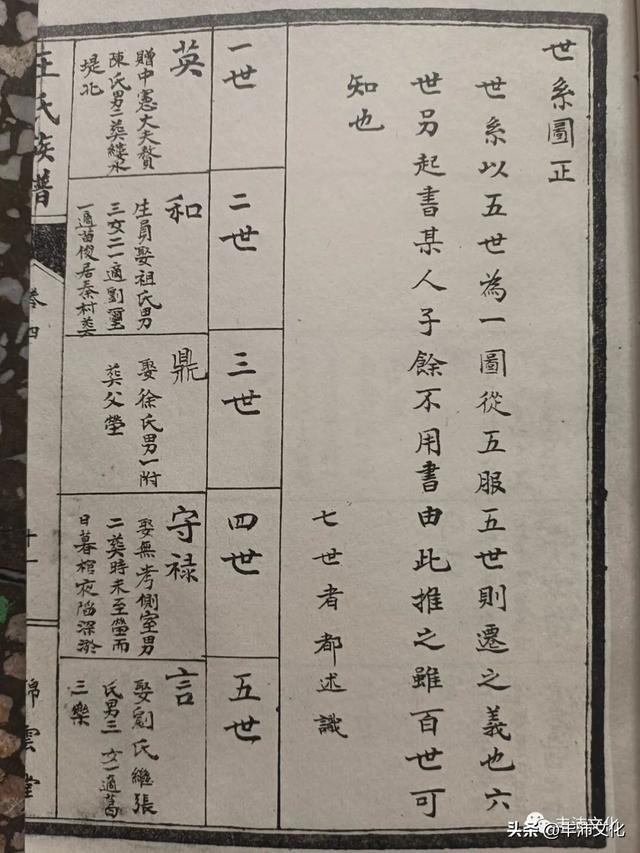 世系圖正
世系以五世為一圖從五服五世則遷之義也六
世另起書某人子餘不用書由此推之雖百世可
知也
七世者都述識
一世
二世
三世
四世
五世
英
贈中憲大夫贅
陳氏男二葬縷水
堤北
和
生員娶祖氏男
三女二一適劉璽
一適苗俊居秦村葬
鼎
娶徐氏男一附
葬父塋
守禄
娶無考側室男
二葬時未至塋而
日暮棺夜陷深淤
言
娶劉氏繼張
氏男三女一適葛
三樂
氏族譜
卷四
十一
錦雲堂
头条 @丰沛文化
丰沛文化